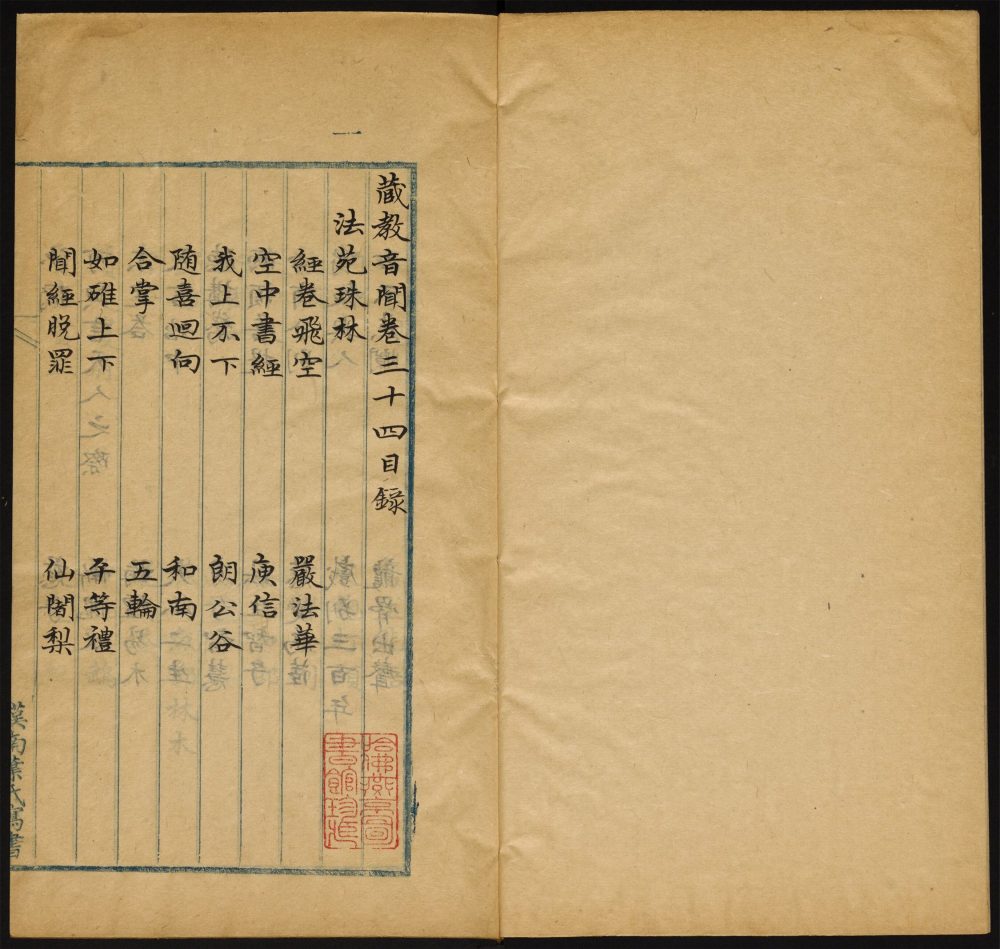 一
蕆教音聞卷三十四目錄
法苑珠林
經卷飛空　嚴法華
空中書經　庾信
我上不下　朗公谷
随喜迴向　和南
合掌　五輪
如碓上下　平等禮
聞經脫罪　仙闍梨
漢南葉氏寫書
哈佛燕京圖書館珍藏